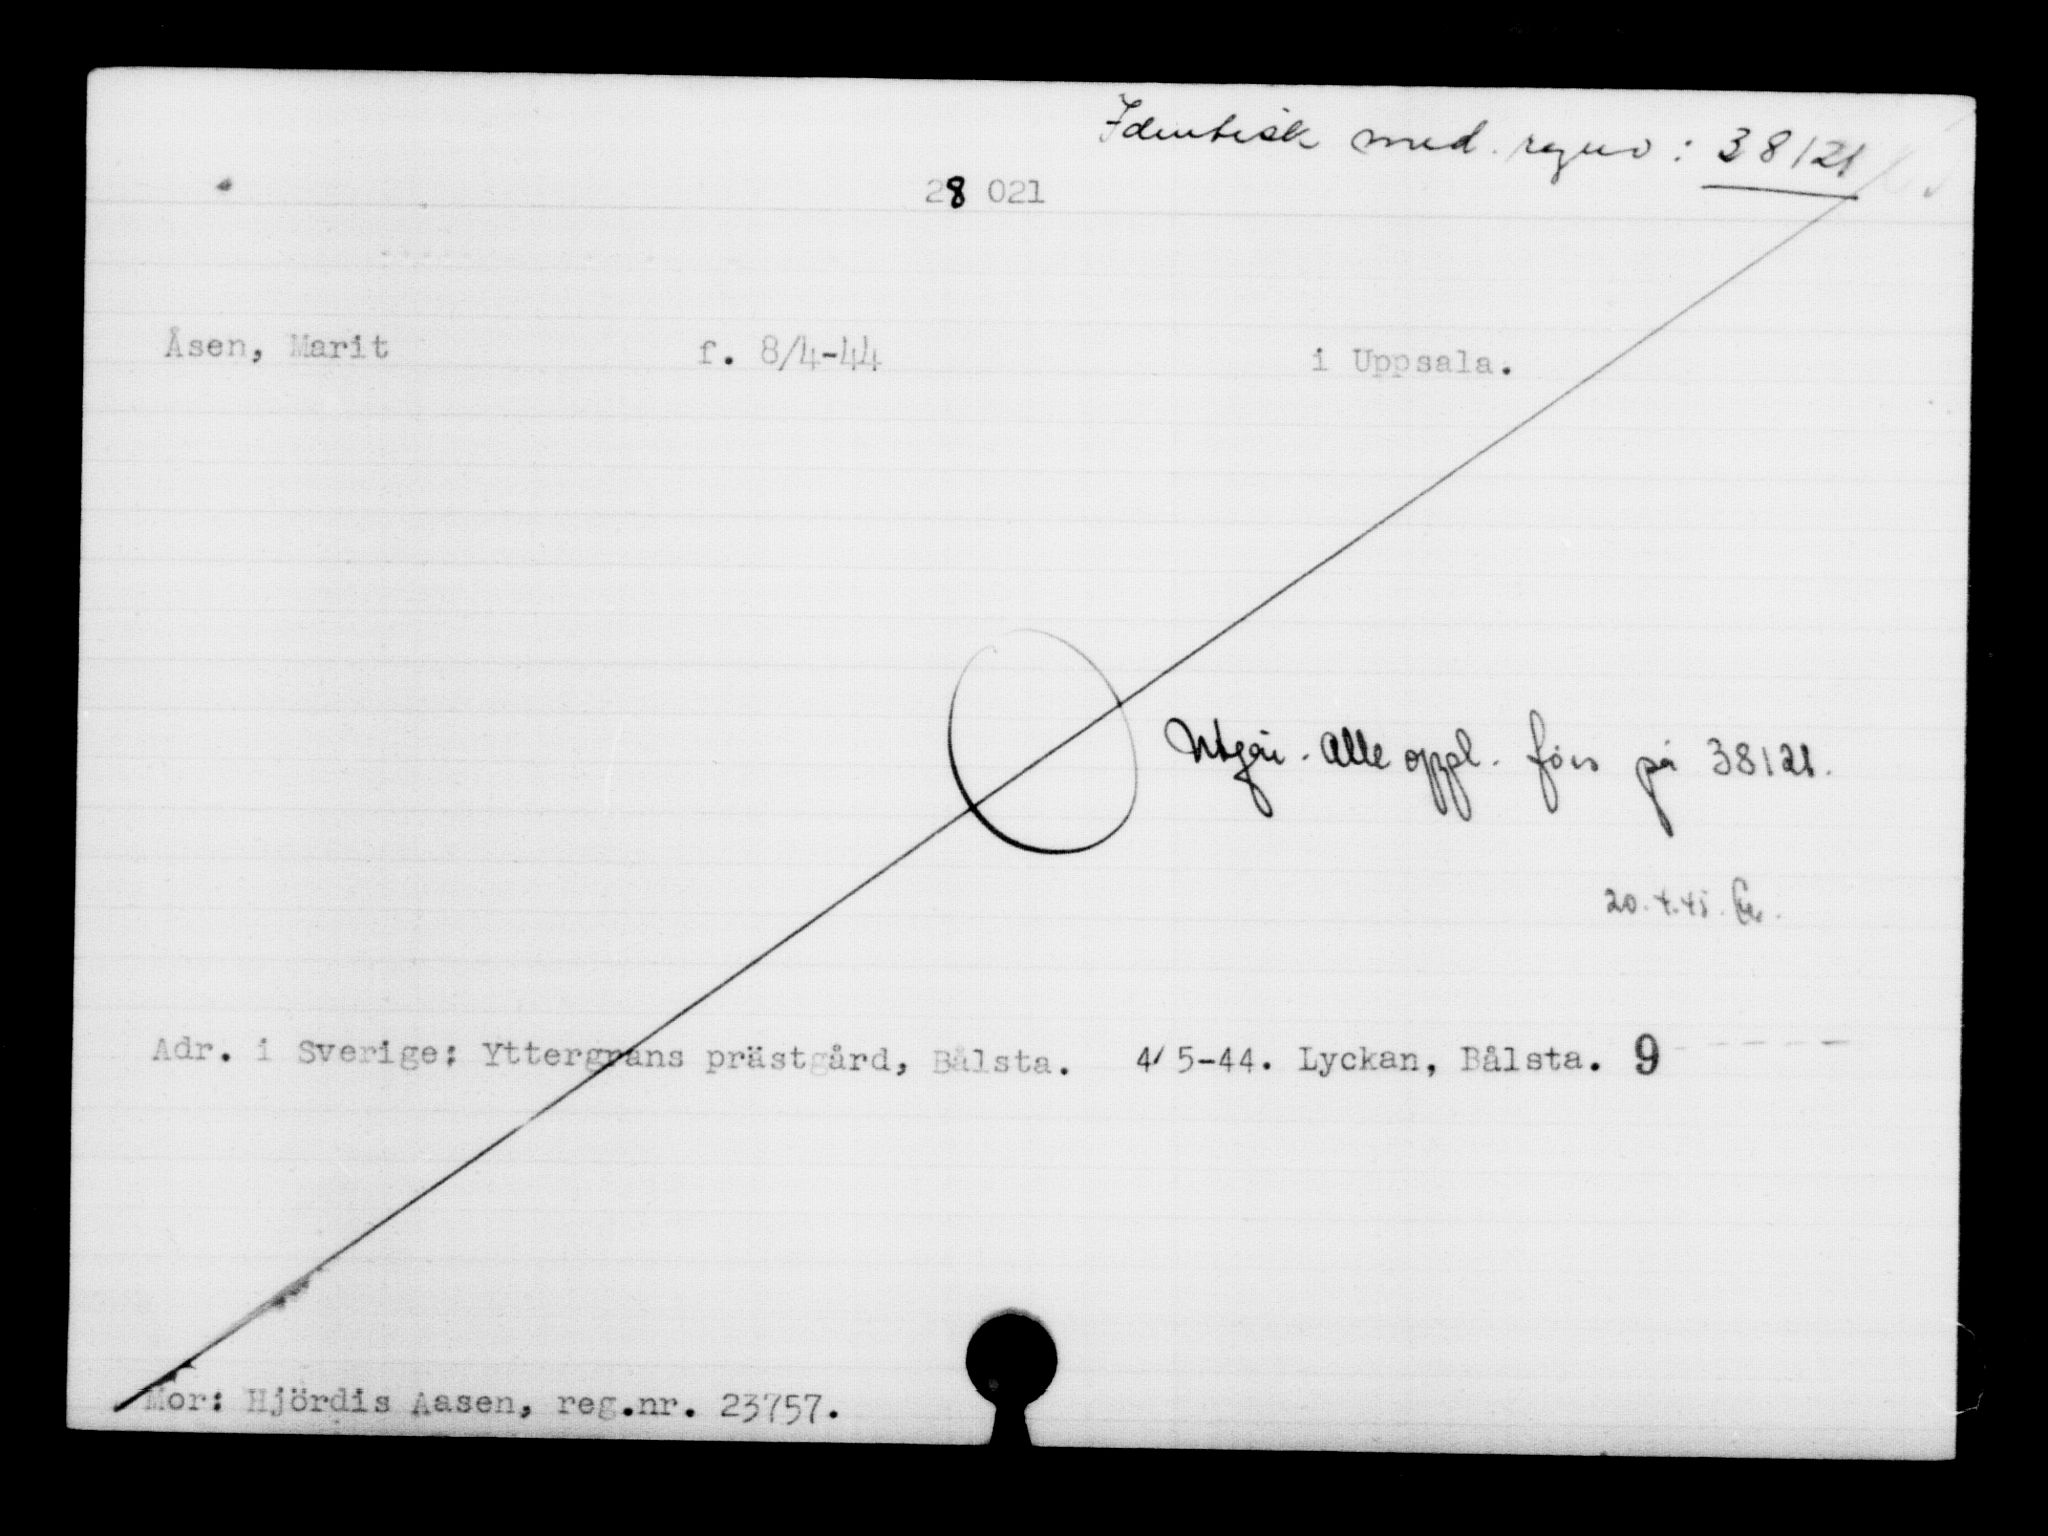 Identisk med regno: 38121
28 021
Åsen, Marit f. 8/4-44 i Uppsala.
Utgår. Alle oppl. förs på 38121.
20.4.45.
Adr. i Sverige: Yttergrans prästgård, Bålsta. 4/5-44. Lyckan, Bålsta. 9
Mor: Hjördis Aasen, reg.nr. 23757.